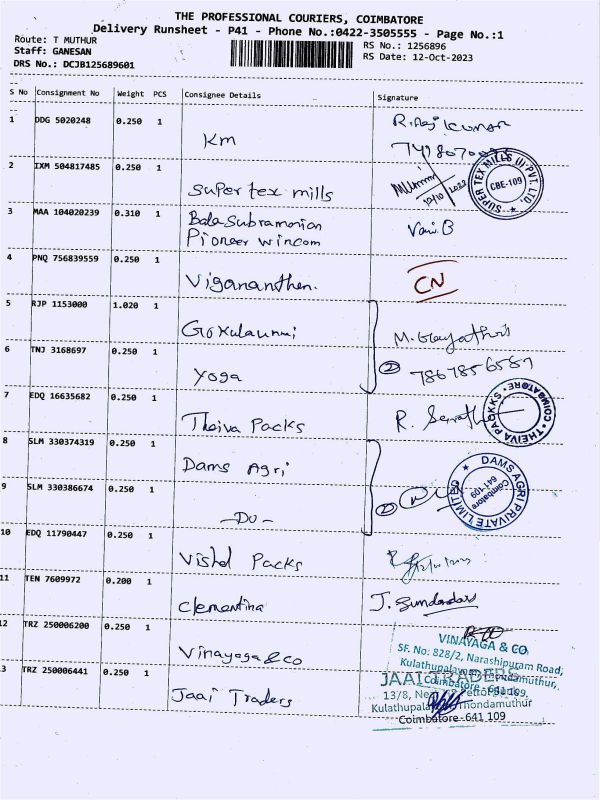 THE PROFESSIONAL COURIERS, COIMBATORE
Delivery Runsheet - P41 - Phone No.:0422-3505555 - Page No.:1
Route: T MUTHUR
RS No.: 1256896
Staff: GANESAN
RS Date: 12-Oct-2023
DRS No.: DCJB125689601
S No Consignment No Weight PCS Consignee Details Signature
1 DDG 5020248 0.250 1 Km R. Raj Kumar
2 IXM 504817485 0.250 1 Super tex mills
SUPER TEX MILLS (I) PVT. LTD. CBE-109
3 MAA 104020239 0.310 1 Bala Subramonian Vani. B
Pioneer Wincom
4 PNQ 756839559 0.250 1 Vigananthen. CN
5 RJP 1153000 1.020 1 Gokulaunni M. Gayathri
6 TNJ 3168697 0.250 1 Yoga ② 7867856587
7 EDQ 16635682 0.250 1 Theiva Packs R.
THEIVA PACKKS COIMBATORE
8 SLM 330374319 0.250 1 Dams Agri
DAMS AGRI PRIVATE LIMITED Coimbatore 641 109
9 SLM 330386674 0.250 1 -Do- ②
10 EDQ 11790447 0.250 1 Vishal Packs
11 TEN 7609972 0.200 1 Clementina J. Sundandar
12 TRZ 250006200 0.250 1 Vinayaga & co
VINAYAGA & CO
SF. No: 828/2, Narashipuram Road,
Kulathupalayam, Thondamuthur,
Coimbatore - 641 109.
3 TRZ 250006441 0.250 1 Jaai Traders
JAAI TRADERS
13/8, Near
Kulathupalayam, Thondamuthur
Coimbatore-641 109